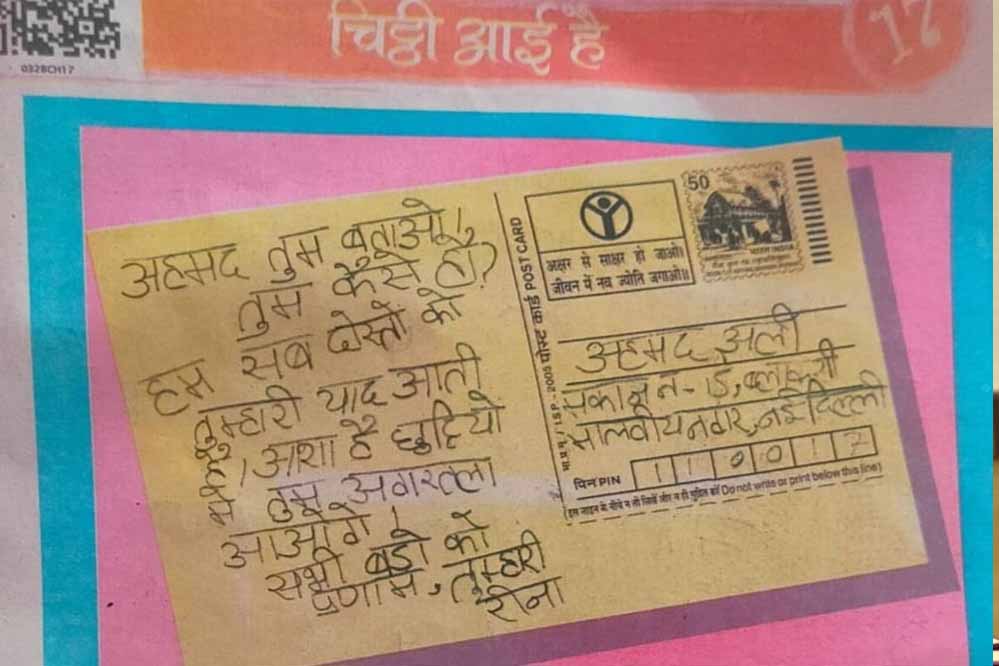 0328CH17
चिट्ठी आई है
17
अहमद तुम बताओ,
तुम कैसे हो?
हम सब दोस्तों को
तुम्हारी याद आती
है। आशा है छुट्टियों
में तुम अगरतला
आओगे।
सभी बड़ों को
प्रणाम, तुम्हारी
रीना
पोस्ट कार्ड POST CARD
अक्षर से साक्षर हो जाओ।
जीवन में नव ज्योति जगाओ॥
50
भारत INDIA
अहमद अली
मकान न-15, ब्लॉक-सी
मालवीय नगर, नई दिल्ली
पिन PIN 110012
इस लाइन के नीचे न तो लिखें और न ही मुद्रित करें (Do not write or print below this line)